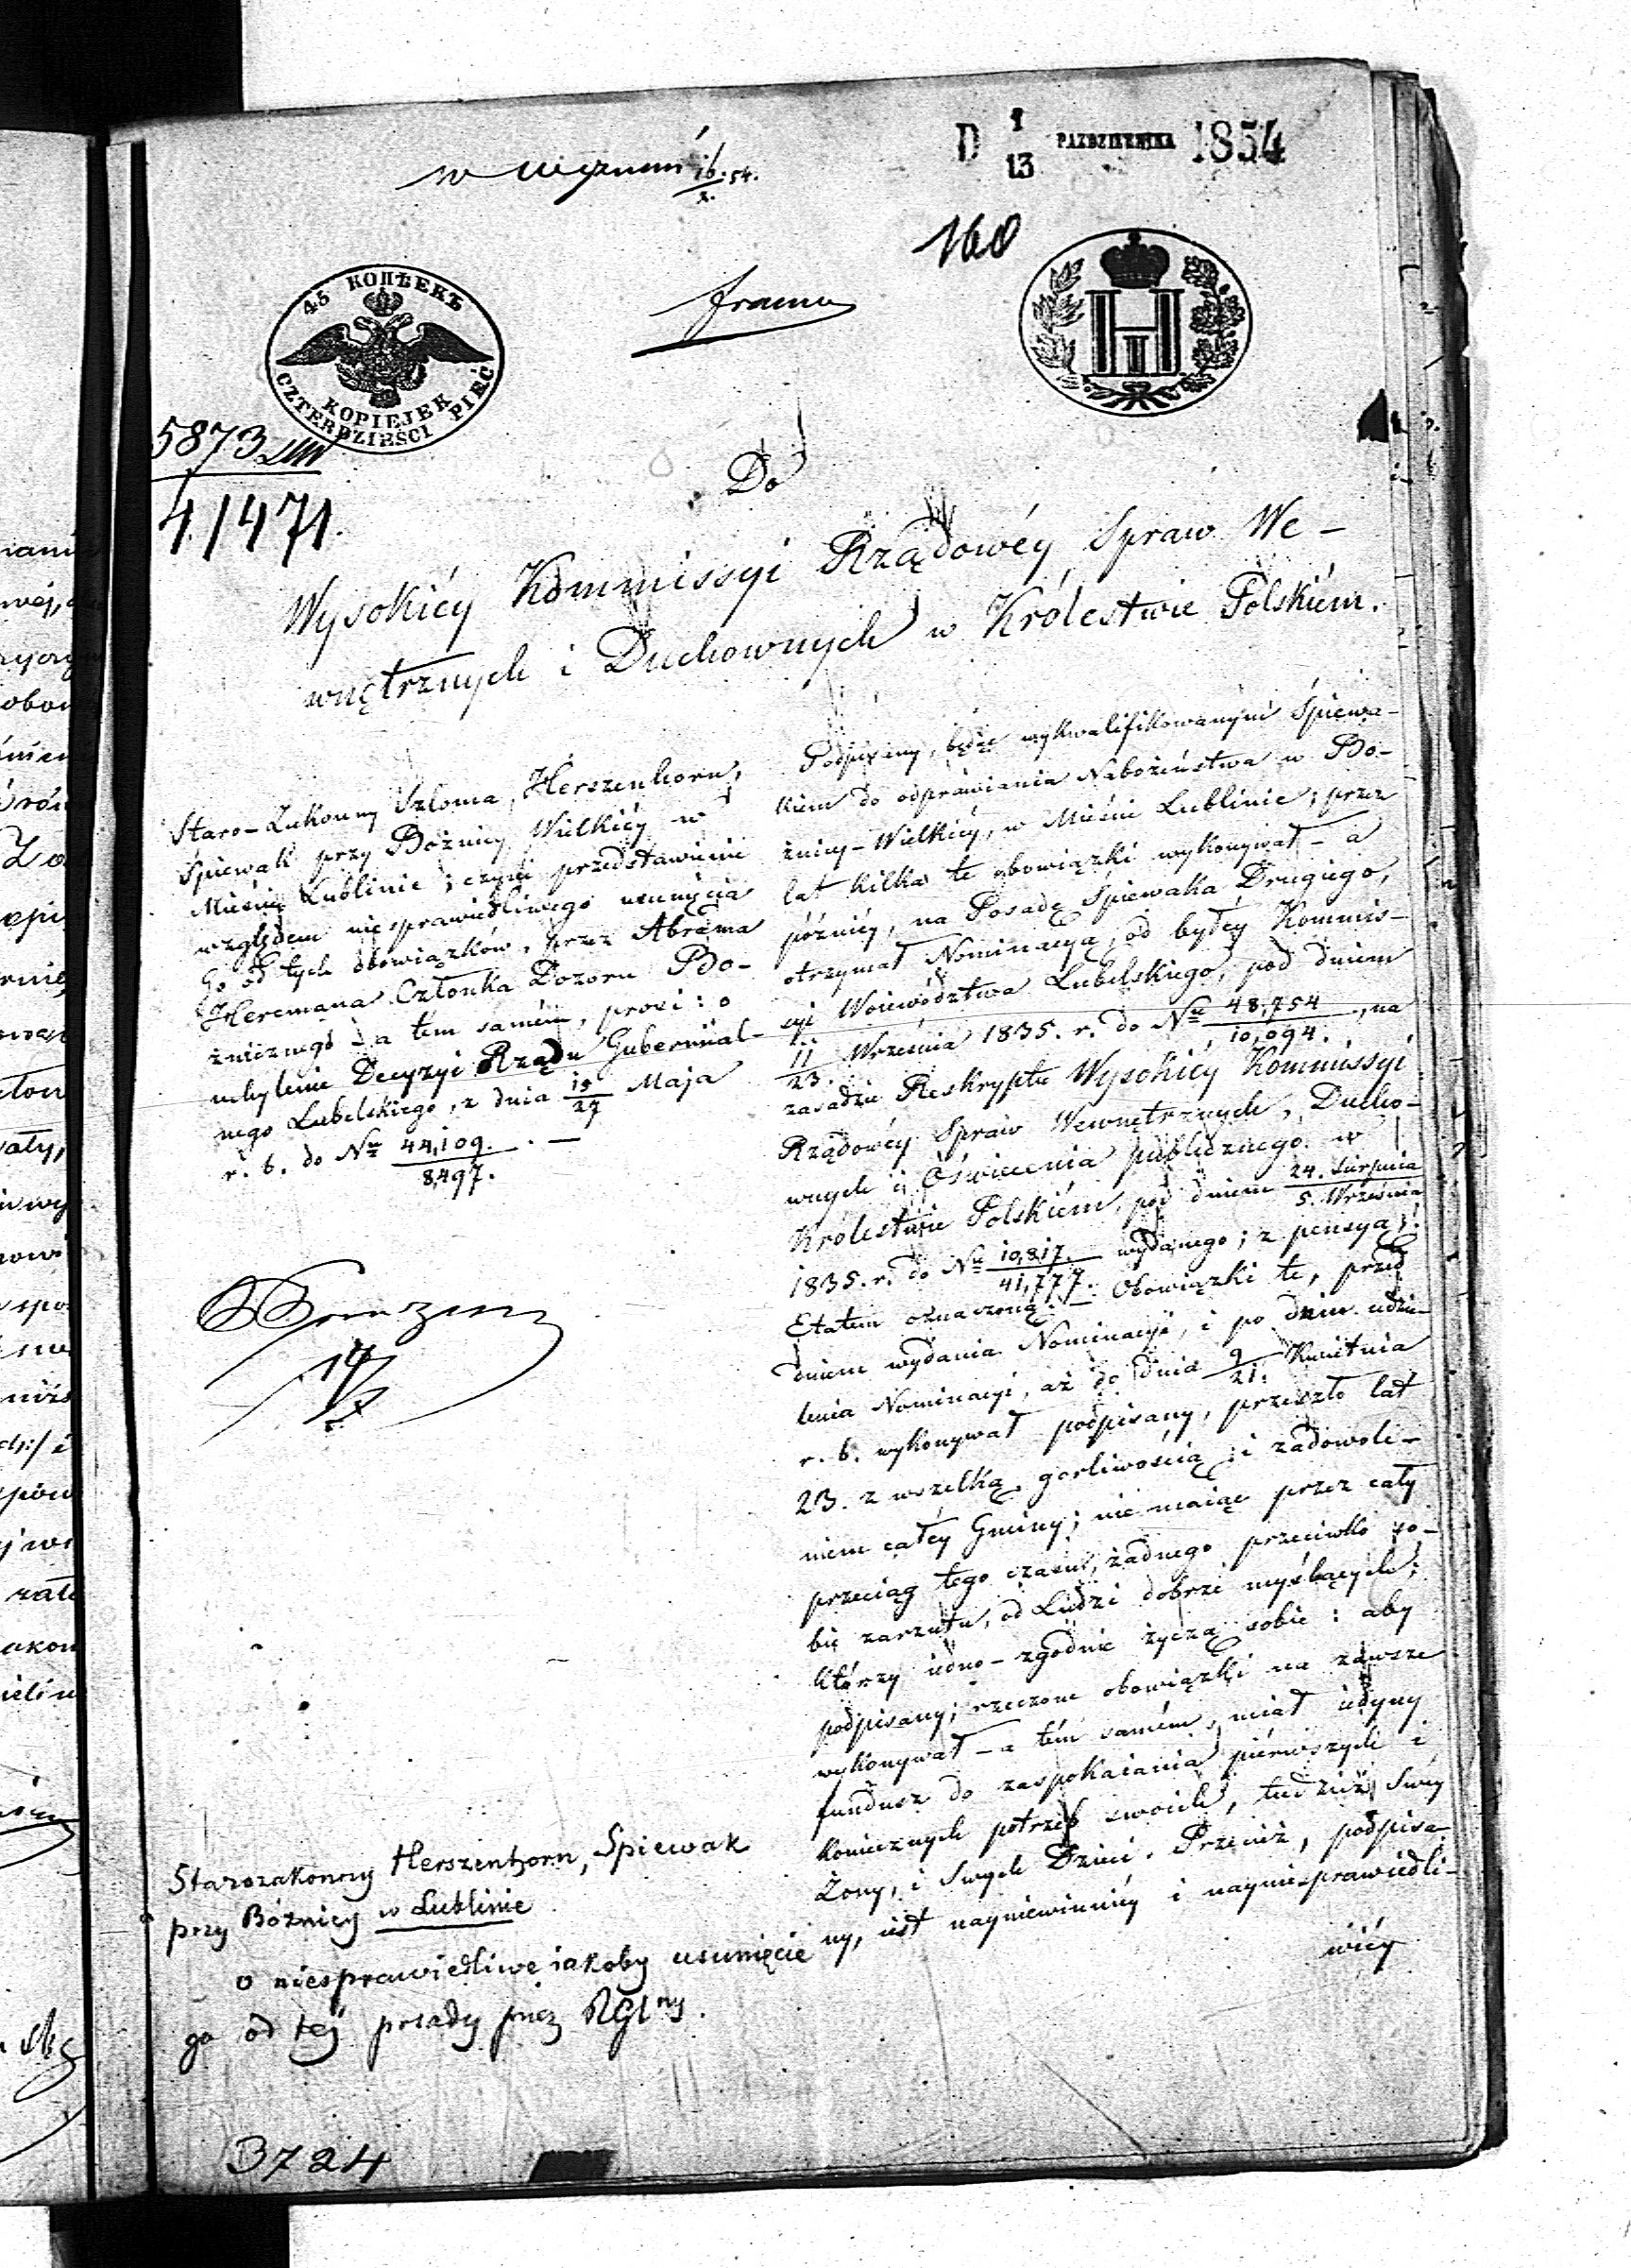 D 1/13 PAZDZIERNIKA 1854
16/X. 54.
160
45 КОПѢЕКЪ
KOPIEJEK
CZTERDZIEŚCI PIĘĆ
franco
5873
41471.
Do
Wysokiéy Kommissyi Rządowéy Spraw We-
wnętrznych i Duchownych w Królestwie Polskiém.
Staro-Zakonny Szloma Herszenhorn,
Śpiewak przy Bóżnicy Wielkiéy w
Mieście Lublinie; czyni przedstawienie
względem niesprawiedliwego usunięcia
Go od tych obowiązków, przez Abrama
Heremana Członka Dozoru Bo-
żniczego - a tem samém, prosi: o
uchylenie Decyzyi Rządu Gubernial-
nego Lubelskiego, z dnia 15/27 Maja
r. b. do Nr 44,109./8,497. . —
Podpisany, będąc wykwalifikowanym Śpiewa-
kiem do odprawiania Nabożeństwa w Bo-
żnicy-Wielkiéy, w Mieście Lublinie; przez
lat kilka te obowiązki wykonywał - a
późniéy, na Posadę Śpiewaka Drugiego,
otrzymał Nominacyą, od byłéy Kommis-
syi Woiewództwa Lubelskiego, pod dniem
11/23. Września 1835. r. do Nr 48,754/10,094. , na
zasadzie Reskryptu Wysokiéy Kommissyi
Rządowéy Spraw Wewnętrznych, Ducho-
wnych i Oświecenia publicznego w
Królestwie Polskiém, pod dniem 24. Sierpnia/5. Września
1835. r. do Nr 10,817./41,777. wydanego; z pensyą,
Etatem oznaczoną. — Obowiązki te, przed
dniem wydania Nominacyi, i po dniu udzie-
lenia Nominacyi, aż do dnia 9/21. Kwietnia
r. b. wykonywał podpisany, przeszło lat
23. z wszelką gorliwością i zadowole-
niem całéy Gminy; nie maiąc przez cały
przeciąg tego czasu, żadnego przeciwko so-
bie zarzutu, od Ludzi dobrze myślących;
którzy iedno-zgodnie życzą sobie: aby
podpisany, rzeczone obowiązki na zawsze
wykonywał - a tém samém, miał iedyny
fundusz do zaspokaiania piérwszych i
koniecznych potrzeb swoich, tudzież Swéy
Żony, i Swych Dzieci. Przecież, podpisa-
ny, iest nayniewinniéy i nayniesprawiedli-
wiéy
Starozakonny Herszenhorn, Spiewak
przy Bóżnicy w Lublinie
o niesprawiedliwe iakoby usunięcie
go od téj posady przez RGlny.
3724